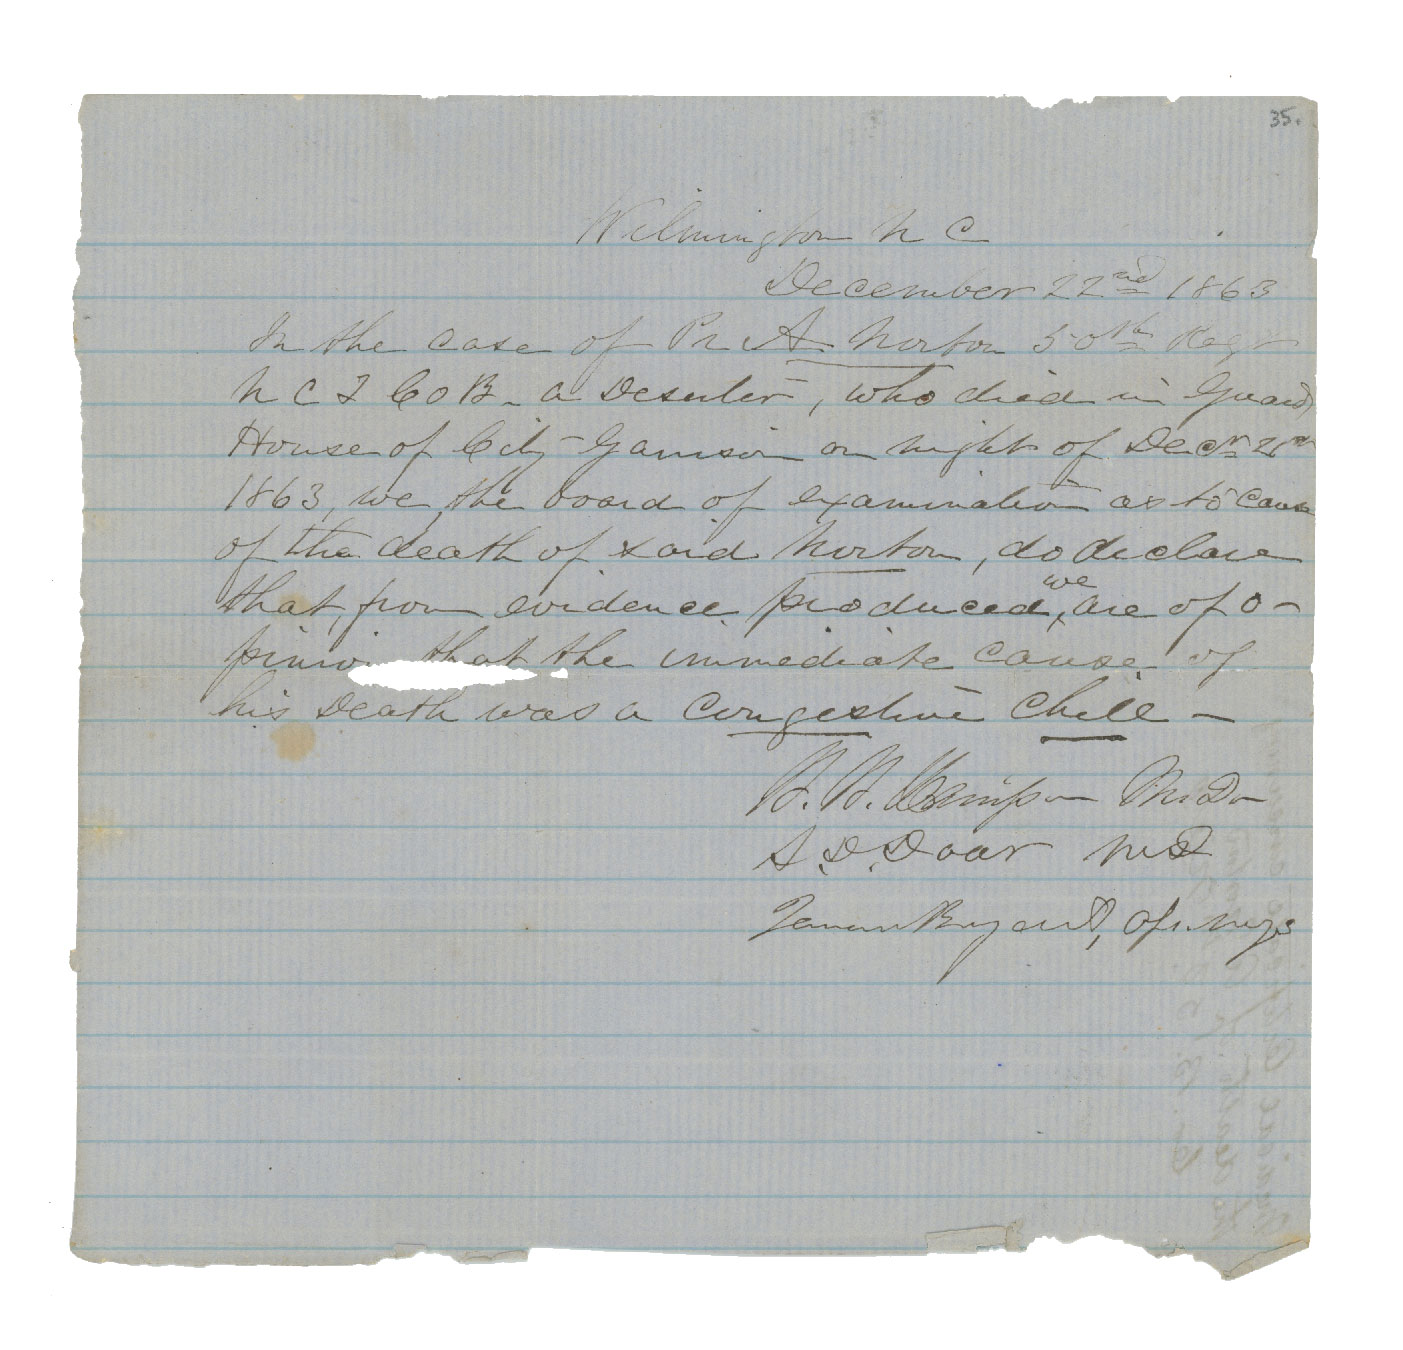 35.
Wilmington N C
December 22nd 1863
In the case of Pr A Norton 50th Regt
N C T Co B - a Deserter, who died in Guard
House of City Garrison on night of Decr 21st
1863, we, the board of examination as to cause
of the death of said Norton, do declare
that, from evidence produced, we are of o-
pinion that the immediate cause of
his Death was a Congestive Chill -
M.D.
S. D. Doar MD
Bryant,